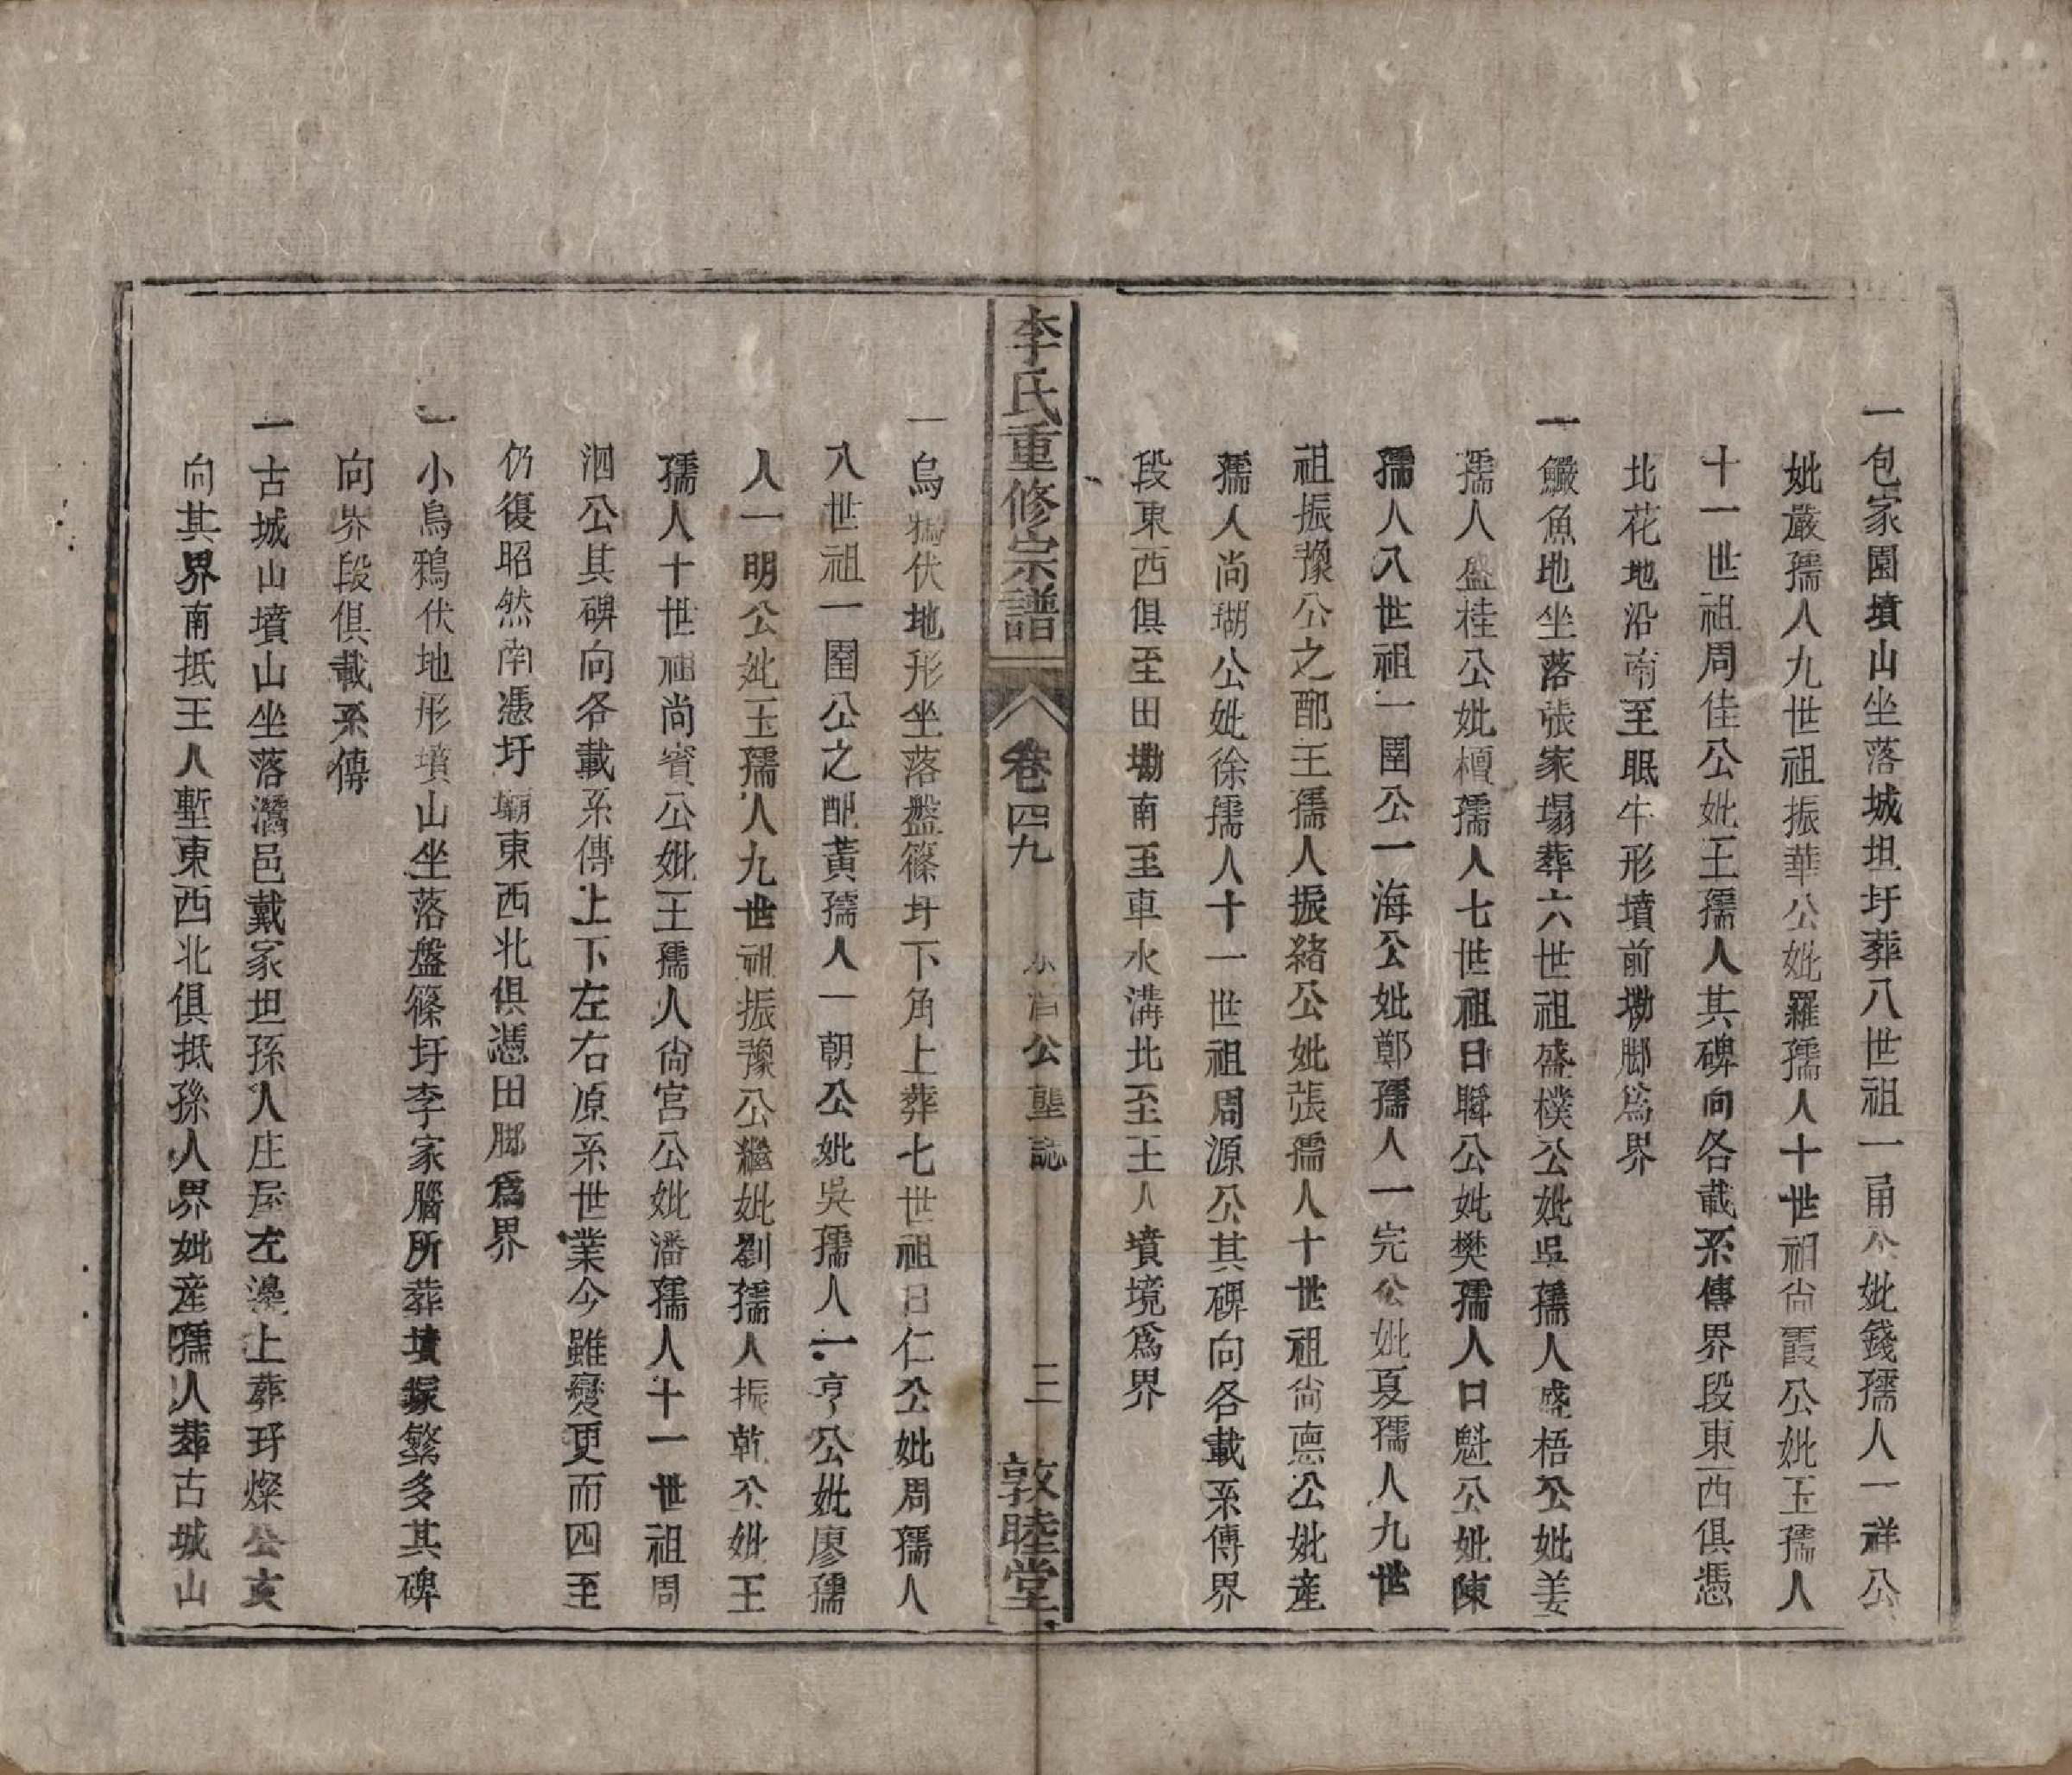 一包家園墳山坐落城坦圩葬八世祖一甬公妣錢孺人一祥公
妣嚴孺人九世祖振華公妣羅孺人十世祖尚霞公妣玉孺人
十一世祖周佳公妣王孺人其碑向各載系傳界段東西俱憑
北花地沿南至眠牛形墳前墈脚爲界
一鱖魚地坐落張家塌葬六世祖盛樸公妣吳孺人盛梧公妣姜
孺人盛桂公妣檀孺人七世祖日睴公妣樊孺人日魁公妣陳
孺人八世祖一圍公一海公妣鄭孺人一完公妣夏孺人九世
祖振豫公之配王孺人振緒公妣張孺人十世祖尚悳公妣産
孺人尚瑚公妣徐孺人十一世祖周源公其碑向各載系傳界
段東西俱至田墈南至車水溝北至王人墳境爲界
李氏重修宗譜 卷四九 公塋誌 三 敦睦堂
一烏鴉伏地形坐落盤篠圩下角上葬七世祖日仁公妣周孺人
八世祖一圍公之配黃孺人一朝公妣吳孺人一亨公妣廖孺
人一明公妣玉孺人九世祖振豫公繼妣劉孺人振乾公妣王
孺人十世祖尚賓公妣王孺人尙宮公妣潘孺人十一世祖周
泗公其碑向各載系傳上下左右原系世業今雖變更而四至
仍復昭然南憑圩塥東西北俱憑田脚爲界
一小烏鴉伏地形墳山坐落盤篠圩李家腦所葬墳塚繁多其碑
向界段俱載系傳
一古城山墳山坐落灊邑戴家坦孫人庄屋左邊上葬玗燦公亥
向其界南抵王人塹東西北俱抵孫人界妣産孺人葬古城山